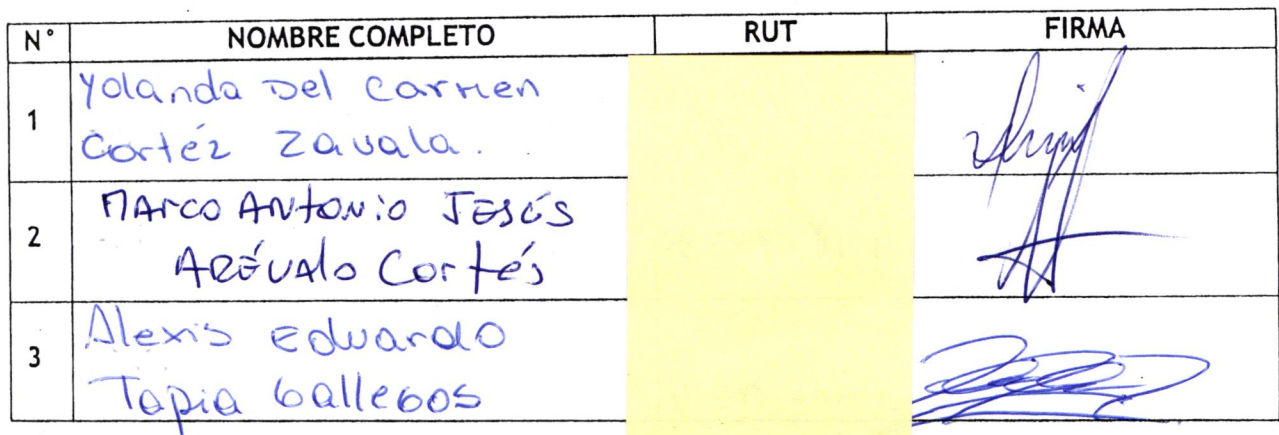 N° NOMBRE COMPLETO RUT FIRMA
1 Yolanda Del Carmen
Cortéz Zavala.
2 Marco Antonio Jesús
Arévalo Cortés
3 Alexis Eduardo
Tapia Gallegos